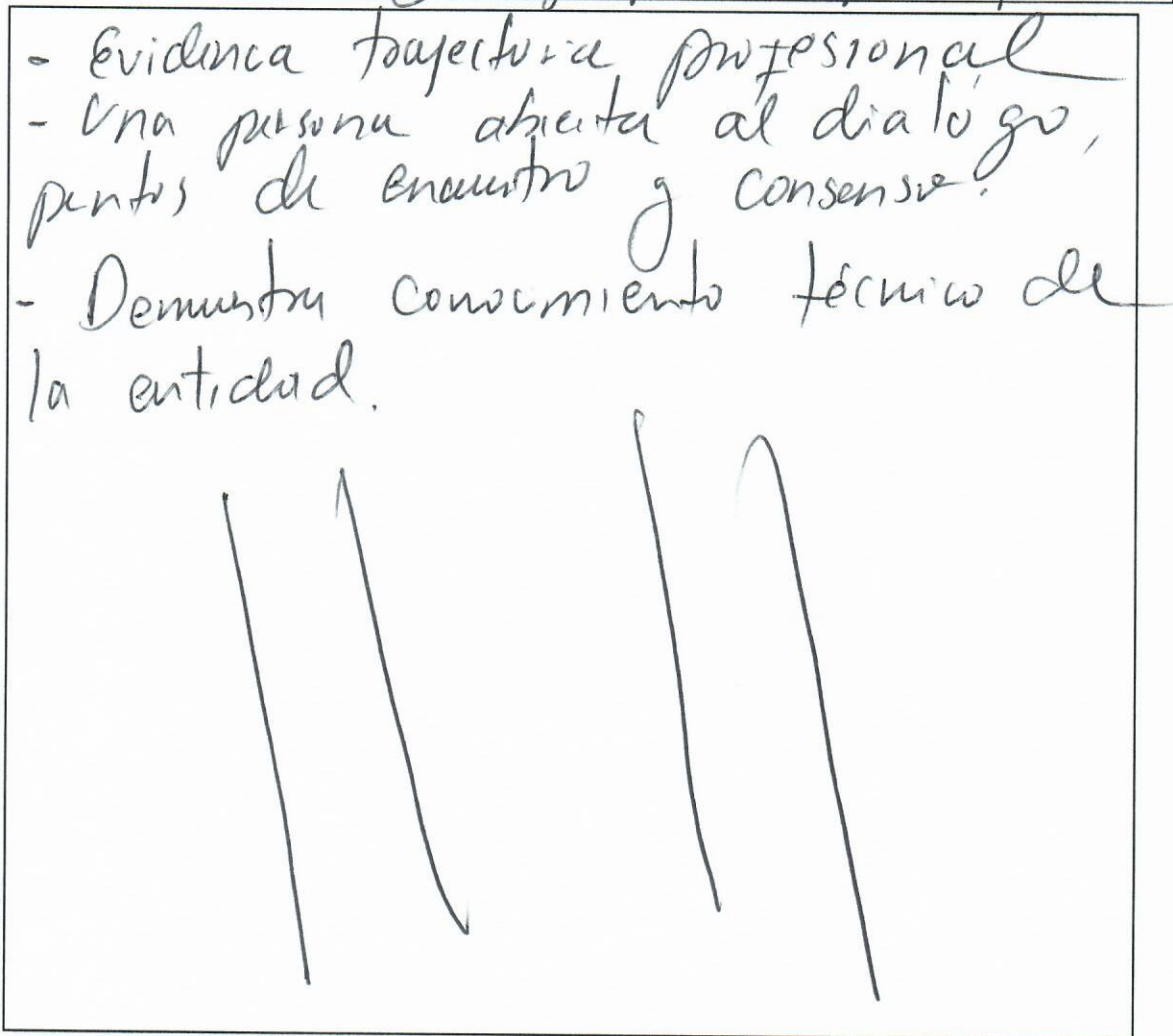 - Evidencia trayectoria profesional
- Una persona abierta al dialógo,
puntos de encuentro y consenso.
- Demuestra conocimiento técnico de
la entidad.